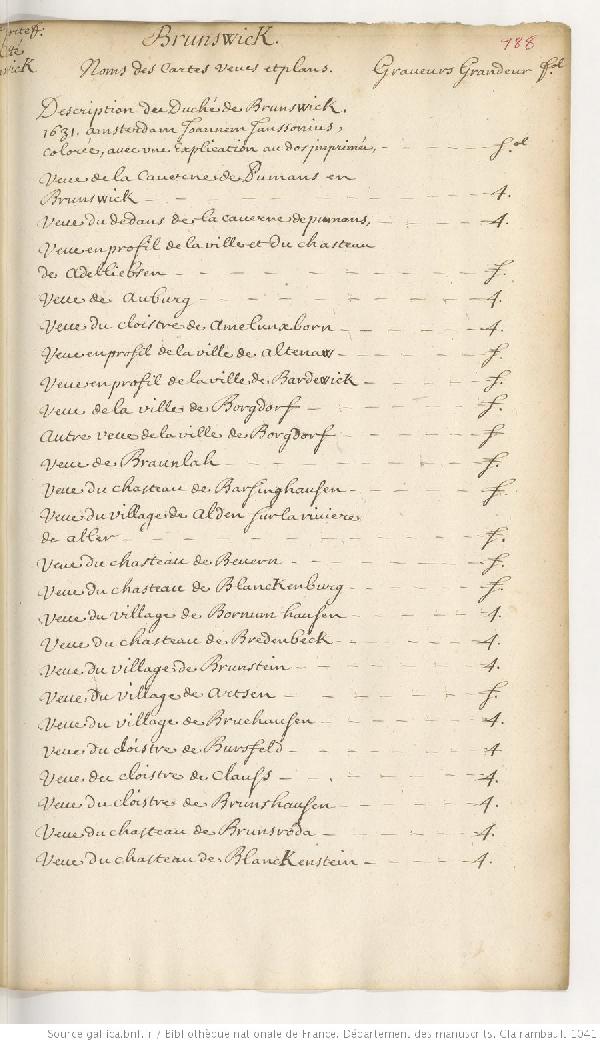 Brunswick.
188
Noms des Cartes Veues et plans. Graveurs Grandeur
Description du Duché de Brunswick.
1631. amsterdam Joannem Janssonius,
colorée, avec une explication au dos imprimée, - f.ol
Veue de la Caverne de Pumans en
Brunswick - 4.
Veue du dedans de la caverne de pumans, - 4.
Veue en profil de la ville et du chasteau
de Adelliebsen - f.
Veue de Auburg - 4.
Veue du cloistre de Amelunxborn - 4.
Veue en profil de la ville de Altenaw - f.
Veue en profil de la ville de Bardewick - f.
Veue de la ville de Borgdorf - f.
Autre veue de la ville de Borgdorf - f
Veue de Braunlah - f.
Veue du chasteau de Barsinghausen - f.
Veue du village de Alden sur la riviere
de aller - f.
Veue du chasteau de Bevern - f.
Veue du chasteau de Blanckenburg - f.
Veue du village de Bornum hausen - 4.
Veue du chasteau de Bredenbeck - 4.
Veue du village de Brunstein - 4.
Veue du village de Artsen - f.
Veue du village de Bruehausen - 4.
Veue du cloistre de Bursfeld - 4
Veue du cloistre de Clauss - 4.
Veue du cloistre de Brunshausen - 4.
Veue du chasteau de Brunsroda - 4.
Veue du chasteau de Blanckenstein - 4.
Source gallica.bnf.fr / Bibliothèque nationale de France. Département des manuscrits. Clairambault 1041